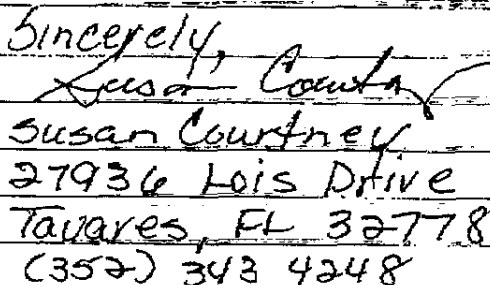 Sincerely,
Susan Courtney
Susan Courtney
27936 Lois Drive
Tavares, FL 32778
(352) 343 4248